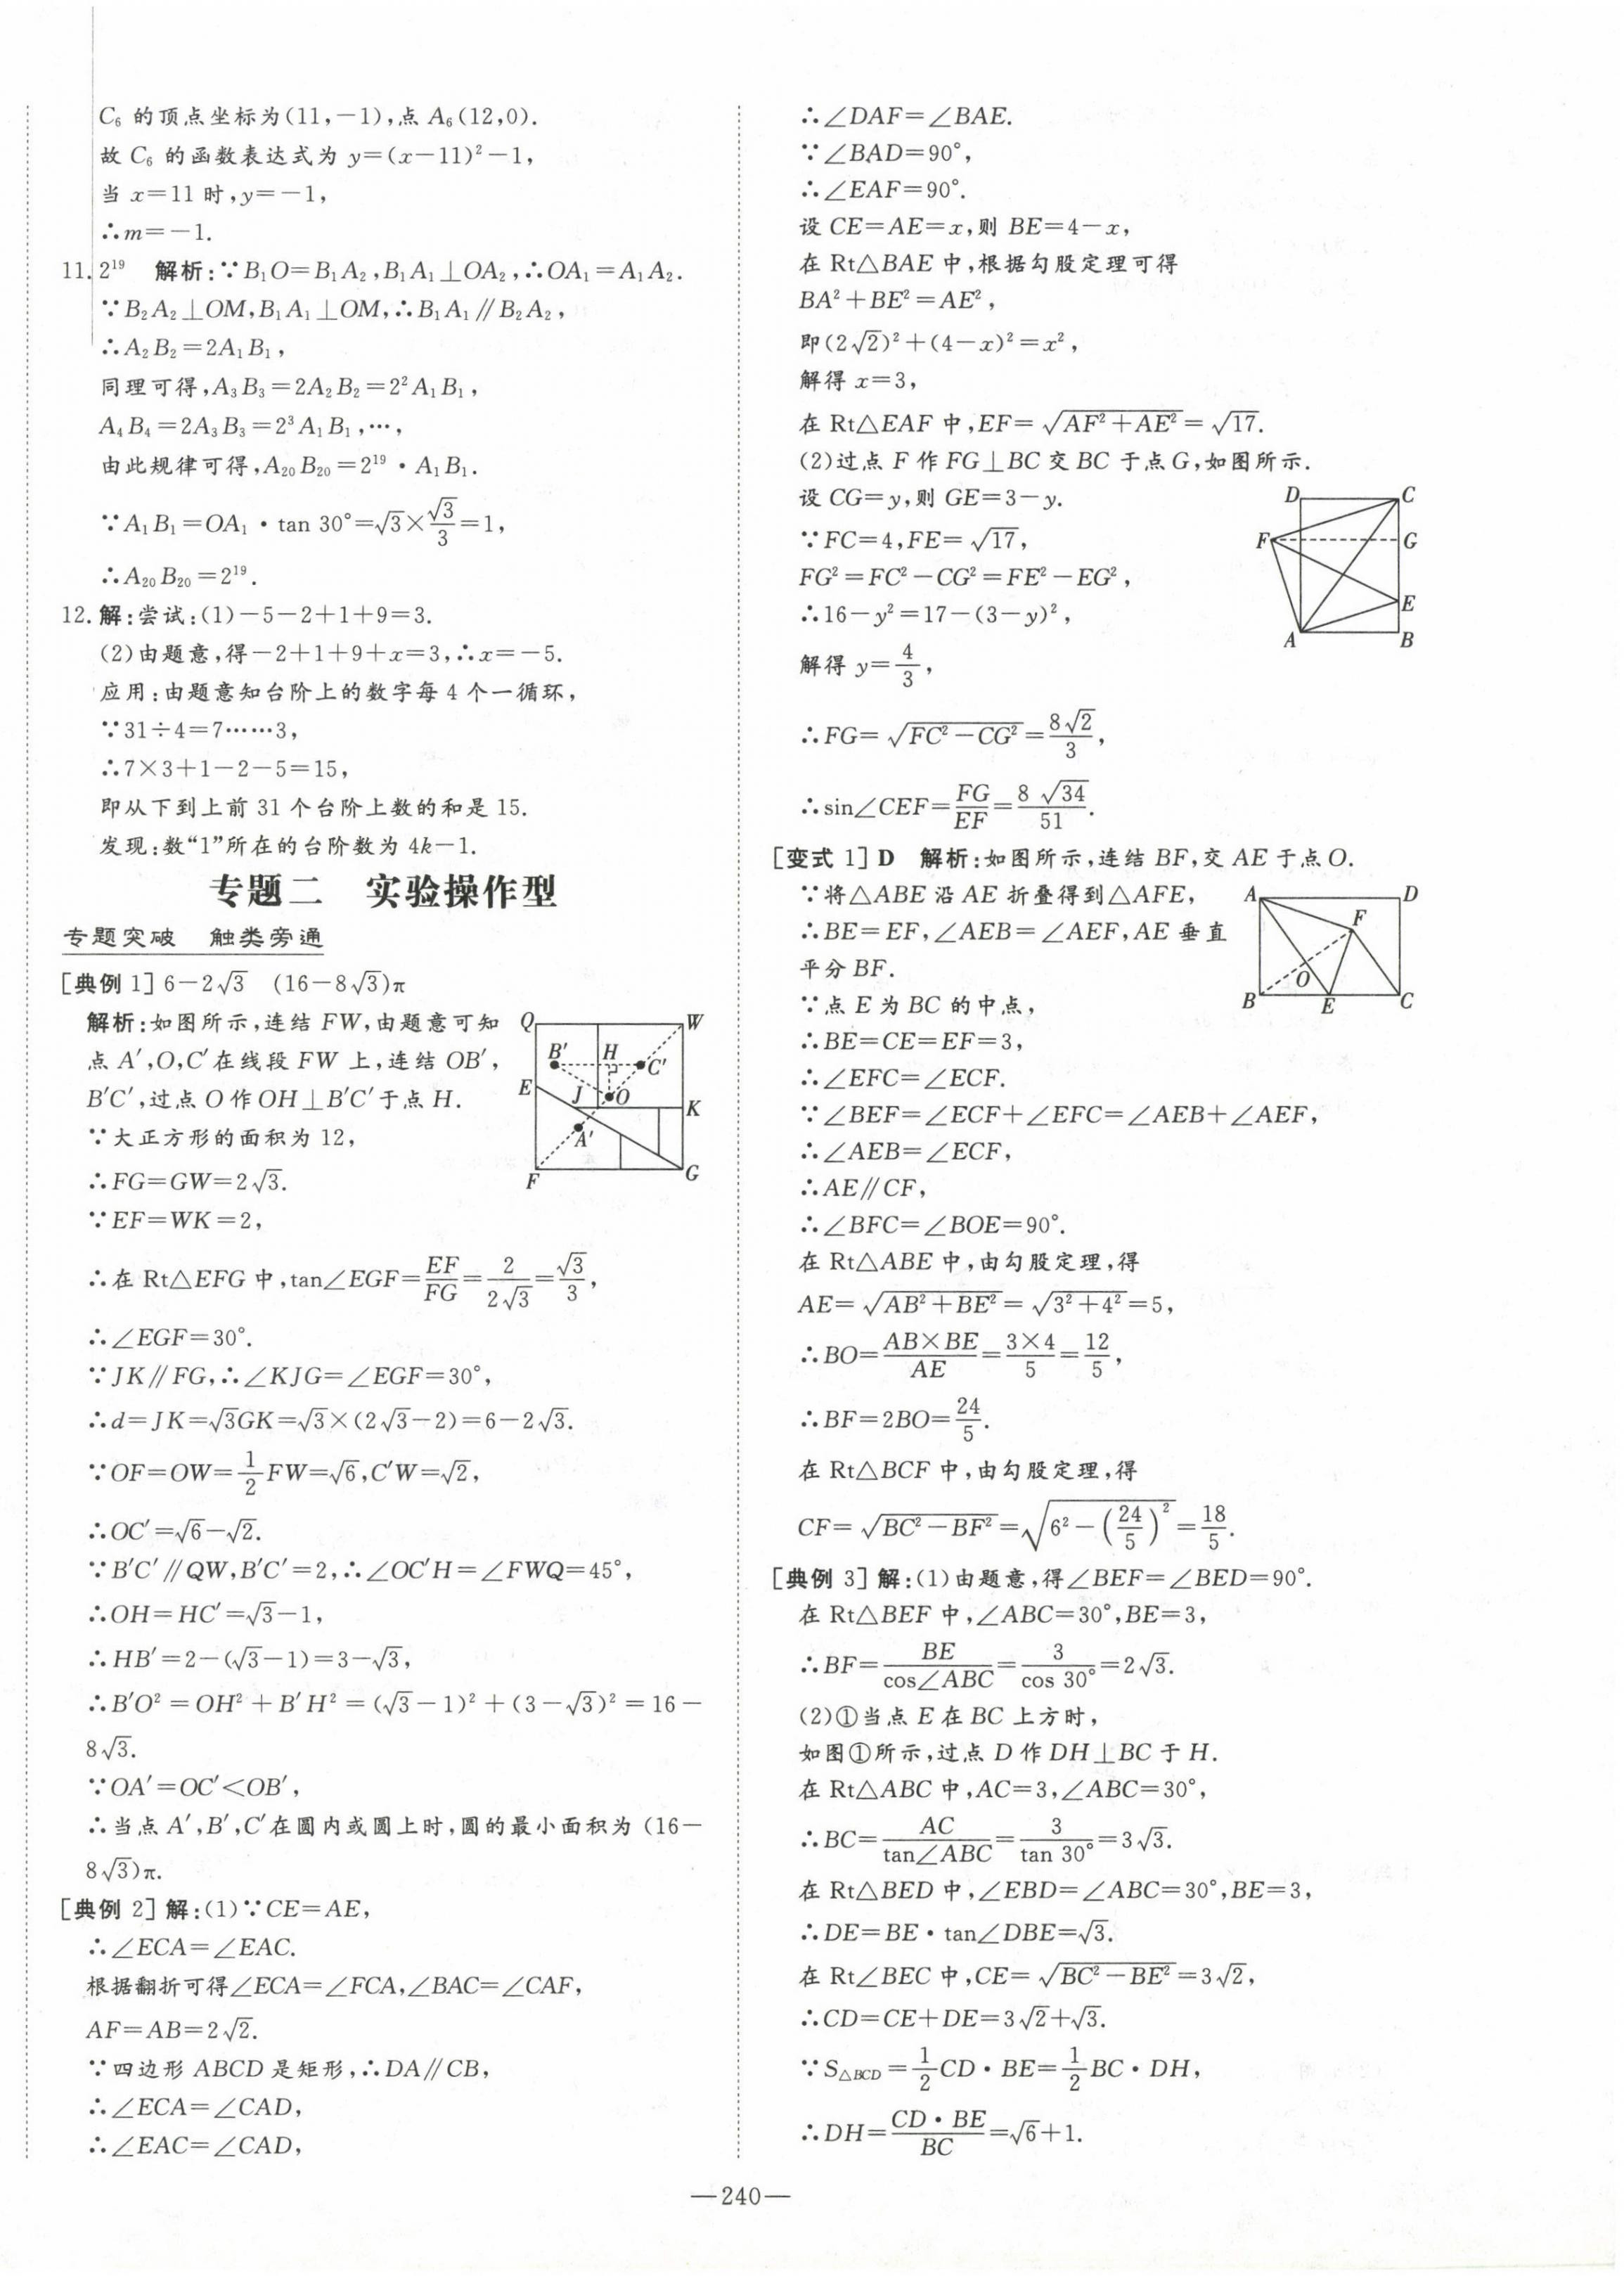 C₆ 的顶点坐标为(11,−1),点 A₆(12,0).
故 C₆ 的函数表达式为 y=(x−11)²−1,
当 x=11 时,y=−1,
∴m=−1.
11. 2¹⁹ 解析:∵B₁O=B₁A₂,B₁A₁⊥OA₂,∴OA₁=A₁A₂.
∵B₂A₂⊥OM,B₁A₁⊥OM,∴B₁A₁∥B₂A₂,
∴A₂B₂=2A₁B₁,
同理可得,A₃B₃=2A₂B₂=2²A₁B₁,
A₄B₄=2A₃B₃=2³A₁B₁,…,
由此规律可得,A₂₀B₂₀=2¹⁹·A₁B₁.
∵A₁B₁=OA₁·tan 30°=√3×√3/3=1,
∴A₂₀B₂₀=2¹⁹.
12. 解:尝试:(1)−5−2+1+9=3.
(2)由题意,得−2+1+9+x=3,∴x=−5.
应用:由题意知台阶上的数字每 4 个一循环,
∵31÷4=7……3,
∴7×3+1−2−5=15,
即从下到上前 31 个台阶上数的和是 15.
发现:数“1”所在的台阶数为 4k−1.
专题二 实验操作型
专题突破 触类旁通
[典例 1] 6−2√3 (16−8√3)π
解析:如图所示,连结 FW,由题意可知
点 A′,O,C′在线段 FW 上,连结 OB′,
B′C′,过点 O 作 OH⊥B′C′于点 H.
∵大正方形的面积为 12,
∴FG=GW=2√3.
∵EF=WK=2,
Q W
B′ H C′
E J O K
A′
F G
∴在 Rt△EFG 中,tan∠EGF=EF/FG=2/(2√3)=√3/3,
∴∠EGF=30°.
∵JK∥FG,∴∠KJG=∠EGF=30°,
∴d=JK=√3GK=√3×(2√3−2)=6−2√3.
∵OF=OW=1/2 FW=√6,C′W=√2,
∴OC′=√6−√2.
∵B′C′∥QW,B′C′=2,∴∠OC′H=∠FWQ=45°,
∴OH=HC′=√3−1,
∴HB′=2−(√3−1)=3−√3,
∴B′O²=OH²+B′H²=(√3−1)²+(3−√3)²=16−
8√3.
∵OA′=OC′<OB′,
∴当点 A′,B′,C′在圆内或圆上时,圆的最小面积为(16−
8√3)π.
[典例 2] 解:(1)∵CE=AE,
∴∠ECA=∠EAC.
根据翻折可得∠ECA=∠FCA,∠BAC=∠CAF,
AF=AB=2√2.
∵四边形 ABCD 是矩形,∴DA∥CB,
∴∠ECA=∠CAD,
∴∠EAC=∠CAD,
∴∠DAF=∠BAE.
∵∠BAD=90°,
∴∠EAF=90°.
设 CE=AE=x,则 BE=4−x,
在 Rt△BAE 中,根据勾股定理可得
BA²+BE²=AE²,
即(2√2)²+(4−x)²=x²,
解得 x=3,
在 Rt△EAF 中,EF=√(AF²+AE²)=√17.
(2)过点 F 作 FG⊥BC 交 BC 于点 G,如图所示.
设 CG=y,则 GE=3−y.
∵FC=4,FE=√17,
FG²=FC²−CG²=FE²−EG²,
∴16−y²=17−(3−y)²,
解得 y=4/3,
D C
F G
E
A B
∴FG=√(FC²−CG²)=8√2/3,
∴sin∠CEF=FG/EF=8√34/51.
[变式 1] D 解析:如图所示,连结 BF,交 AE 于点 O.
∵将△ABE 沿 AE 折叠得到△AFE,
∴BE=EF,∠AEB=∠AEF,AE 垂直
平分 BF.
∵点 E 为 BC 的中点,
A D
F
O
B E C
∴BE=CE=EF=3,
∴∠EFC=∠ECF.
∵∠BEF=∠ECF+∠EFC=∠AEB+∠AEF,
∴∠AEB=∠ECF,
∴AE∥CF,
∴∠BFC=∠BOE=90°.
在 Rt△ABE 中,由勾股定理,得
AE=√(AB²+BE²)=√(3²+4²)=5,
∴BO=AB×BE/AE=3×4/5=12/5,
∴BF=2BO=24/5.
在 Rt△BCF 中,由勾股定理,得
CF=√(BC²−BF²)=√(6²−(24/5)²)=18/5.
[典例 3] 解:(1)由题意,得∠BEF=∠BED=90°.
在 Rt△BEF 中,∠ABC=30°,BE=3,
∴BF=BE/cos∠ABC=3/cos 30°=2√3.
(2)①当点 E 在 BC 上方时,
如图①所示,过点 D 作 DH⊥BC 于 H.
在 Rt△ABC 中,AC=3,∠ABC=30°,
∴BC=AC/tan∠ABC=3/tan 30°=3√3.
在 Rt△BED 中,∠EBD=∠ABC=30°,BE=3,
∴DE=BE·tan∠DBE=√3.
在 Rt∠BEC 中,CE=√(BC²−BE²)=3√2,
∴CD=CE+DE=3√2+√3.
∵S△BCD=1/2 CD·BE=1/2 BC·DH,
∴DH=CD·BE/BC=√6+1.
—240—